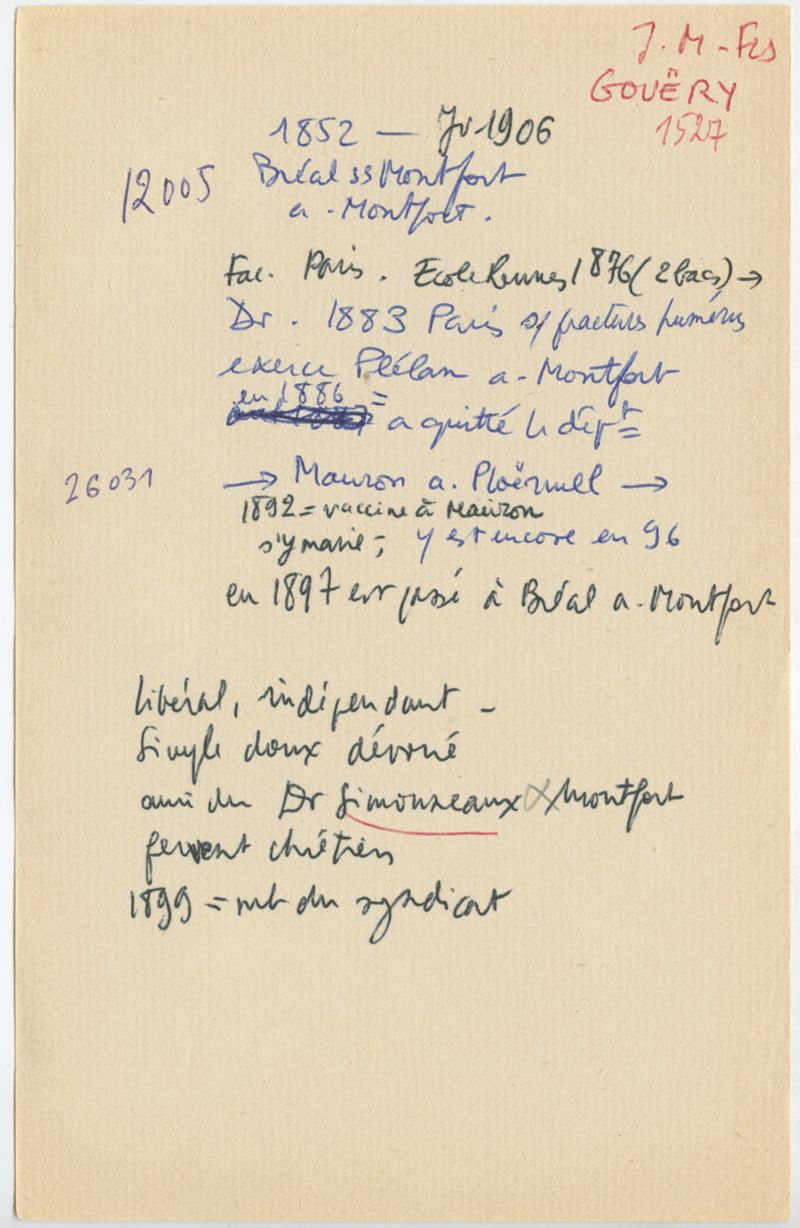 J. M - Fcs
GOUËRY
1527
1852 — Jr 1906
12005 Bréal ss Montfort
a - Montfort.
Fac. Paris. Ecole Rennes 1876 (2 bacs) →
Dr. 1883 Paris s/ fractures humérus
exerce Plélan a - Montfort
en 1886 =
a quitté le dépt =
26031 → Mauron a. Ploërmel →
1892 = vaccine à Mauron
s'y marie ; y est encore en 96
en 1897 est passé à Bréal a. Montfort
libéral, indépendant -
Simple doux dévoué
ami du Dr Simonneaux x Montfort
fervent chrétien
1899 = mb du syndicat